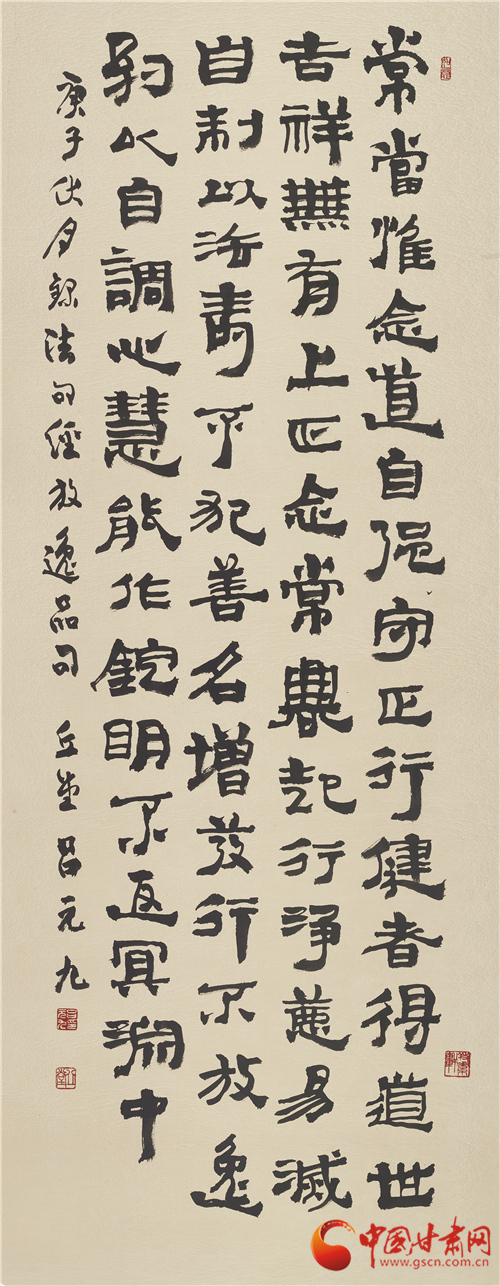 常當惟念道自強守正行健者得道世
吉祥無有上正念常興起行淨惡易滅
自制以法壽不犯善名增發行不放逸
約以自調心慧能作錠明不返冥淵中
庚子伏月録法句經放逸品句 丘堂吕元九
中国甘肃网
www.gscn.com.cn